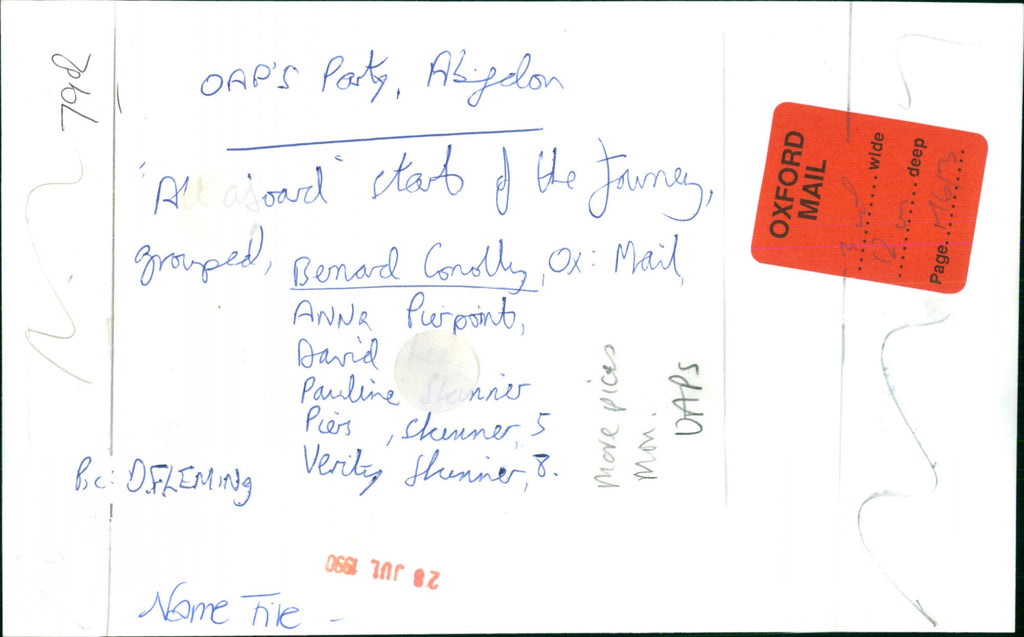 OAP'S Party, Abigdon
"All aboard" start of the Journey,
grouped, Bernard Conolly, Ox: Mail,
ANNA Pierpoint,
David Lee
Pauline Skinner
Piers, Skinner, 5
Verity Skinner, 8.
Pic: D.FLEMING
Name File -
28 JUL 1990
798
More pices
Mon.
OAPs
OXFORD
MAIL
wide
deep
Page